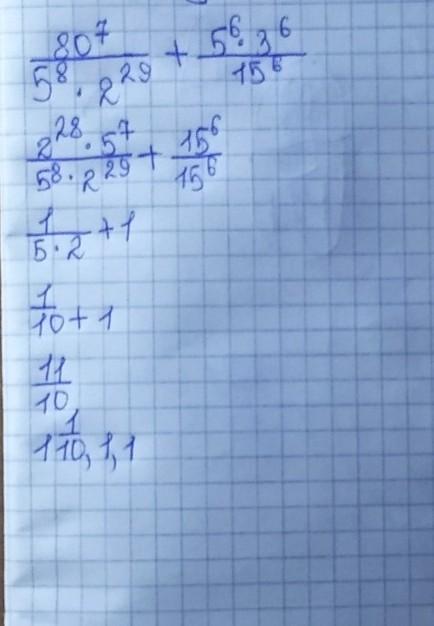 80⁷/(5⁸ · 2²⁹) + (5⁶ · 3⁶)/15⁶
(2²⁸ · 5⁷)/(5⁸ · 2²⁹) + 15⁶/15⁶
1/(5 · 2) + 1
1/10 + 1
11/10
1 1/10, 1,1